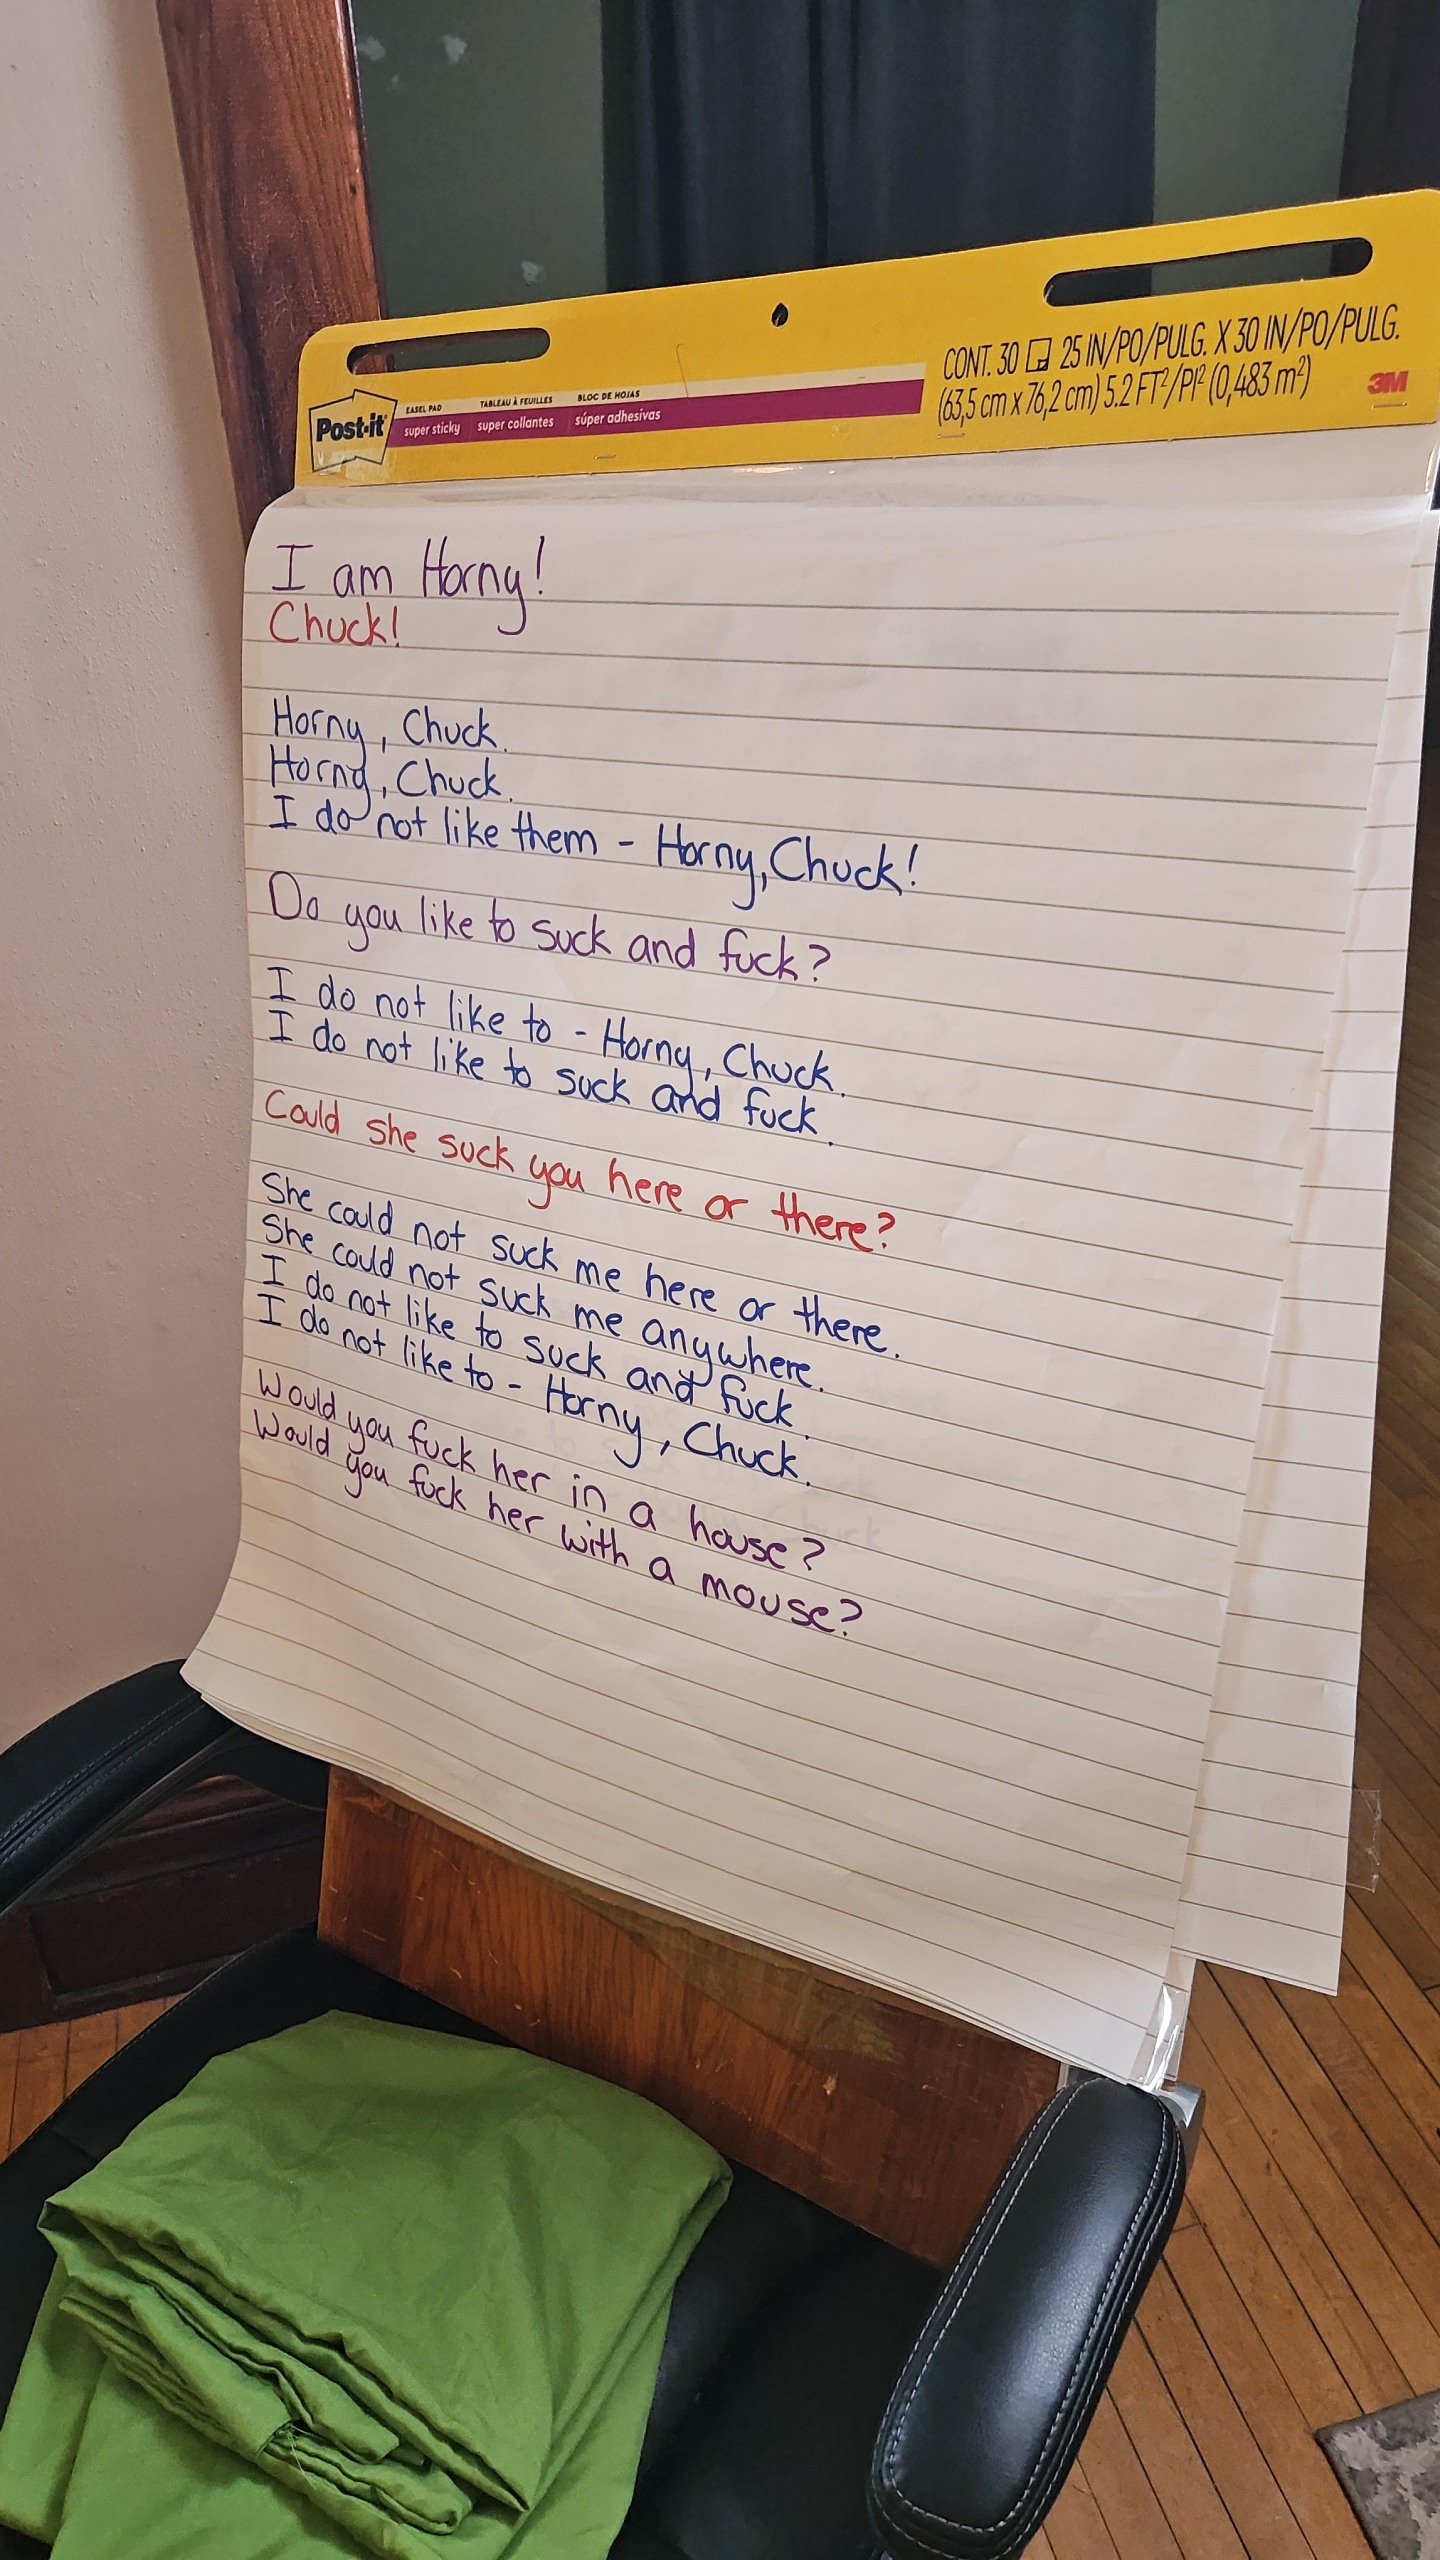 Post-it
EASEL PAD TABLEAU À FEUILLES BLOC DE HOJAS
super sticky super collantes súper adhesivas
CONT. 30 25 IN/PO/PULG. X 30 IN/PO/PULG.
(63,5 cm x 76,2 cm) 5.2 FT²/PI² (0,483 m²)
3M
I am Horny!
Chuck!
Horny, Chuck.
Horny, Chuck.
I do not like them - Horny, Chuck!
Do you like to suck and fuck?
I do not like to - Horny, Chuck.
I do not like to suck and fuck.
Could she suck you here or there?
She could not suck me here or there.
She could not suck me anywhere.
I do not like to suck and fuck.
I do not like to - Horny, Chuck.
Would you fuck her in a house?
Would you fuck her with a mouse?